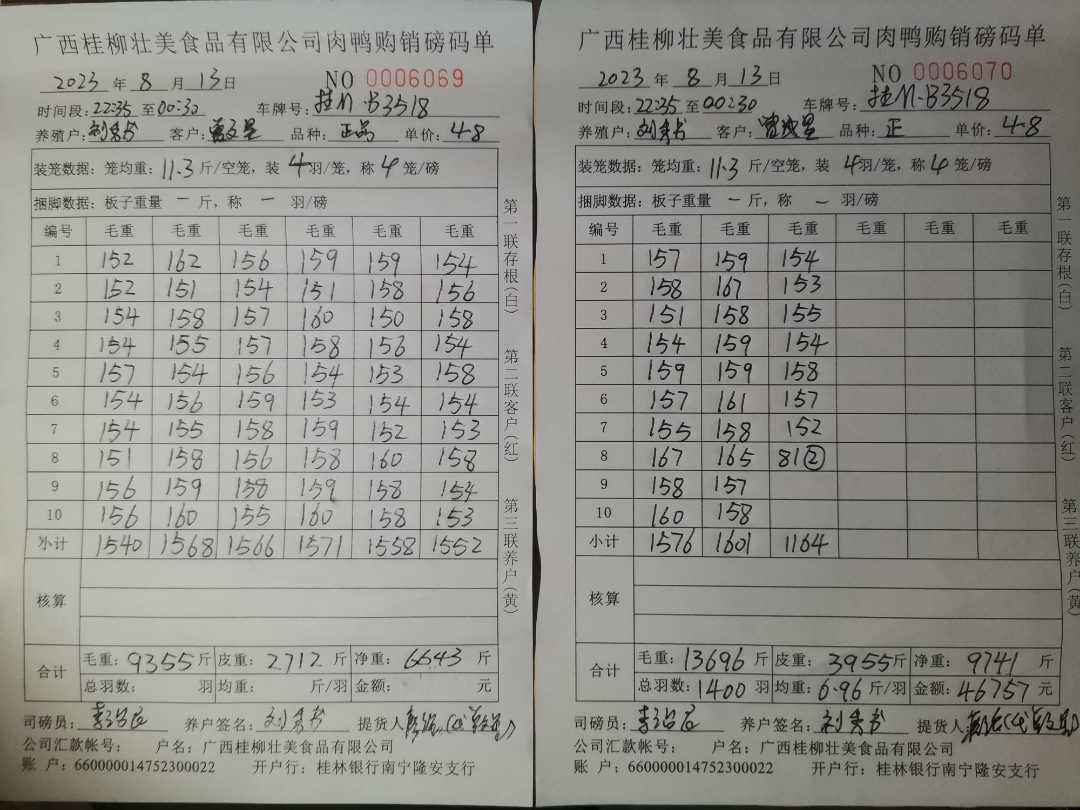 广西桂柳壮美食品有限公司肉鸭购销磅码单
2023 年 8 月 13 日 NO 0006069
时间段: 22:35 至 00:30 车牌号: 桂N·B3518
养殖户: 刘秀书 客户: 品种: 正品 单价: 4-8
装笼数据: 笼均重: 11.3 斤/空笼, 装 4 羽/笼, 称 4 笼/磅
捆脚数据: 板子重量 一 斤, 称 一 羽/磅
编号 毛重 毛重 毛重 毛重 毛重 毛重
1 152 162 156 159 159 154
2 152 151 154 151 158 156
3 154 158 157 160 150 158
4 154 155 157 158 156 154
5 157 154 156 154 153 158
6 154 156 159 153 54 154
7 154 155 158 159 152 153
8 151 158 156 158 160 158
9 156 159 158 159 158 154
10 156 160 155 160 58 153
小计 1540 1568 1566 1571 1558 1552
核算
合计 毛重: 9355 斤 皮重: 2712 斤 净重: 6643 斤
总羽数: 羽 均重: 斤/羽 金额: 元
司磅员: 养户签名: 刘秀书 提货人
公司汇款帐号: 户名: 广西桂柳壮美食品有限公司
账 户: 660000014752300022 开户行: 桂林银行南宁隆安支行
第一联存根(白) 第二联客户(红) 第三联养户(黄)
广西桂柳壮美食品有限公司肉鸭购销磅码单
2023 年 8 月 13 日 NO 0006070
时间段: 22:35 至 00:30 车牌号: 桂N·B3518
养殖户: 刘秀书 客户: 品种: 正 单价: 4-8
装笼数据: 笼均重: 11.3 斤/空笼, 装 4 羽/笼, 称 4 笼/磅
捆脚数据: 板子重量 一 斤, 称 一 羽/磅
编号 毛重 毛重 毛重 毛重 毛重 毛重
1 157 159 154
2 158 167 153
3 151 158 155
4 154 159 154
5 159 159 158
6 157 161 157
7 155 158 152
8 167 165 81②
9 158 157
10 160 158
小计 1576 1601 1164
核算
合计 毛重: 13696 斤 皮重: 3955 斤 净重: 9741 斤
总羽数: 1400 羽 均重: 6.96 斤/羽 金额: 46757 元
司磅员: 养户签名: 刘秀书 提货人
公司汇款帐号: 户名: 广西桂柳壮美食品有限公司
账 户: 660000014752300022 开户行: 桂林银行南宁隆安支行
第一联存根(白) 第二联客户(红) 第三联养户(黄)